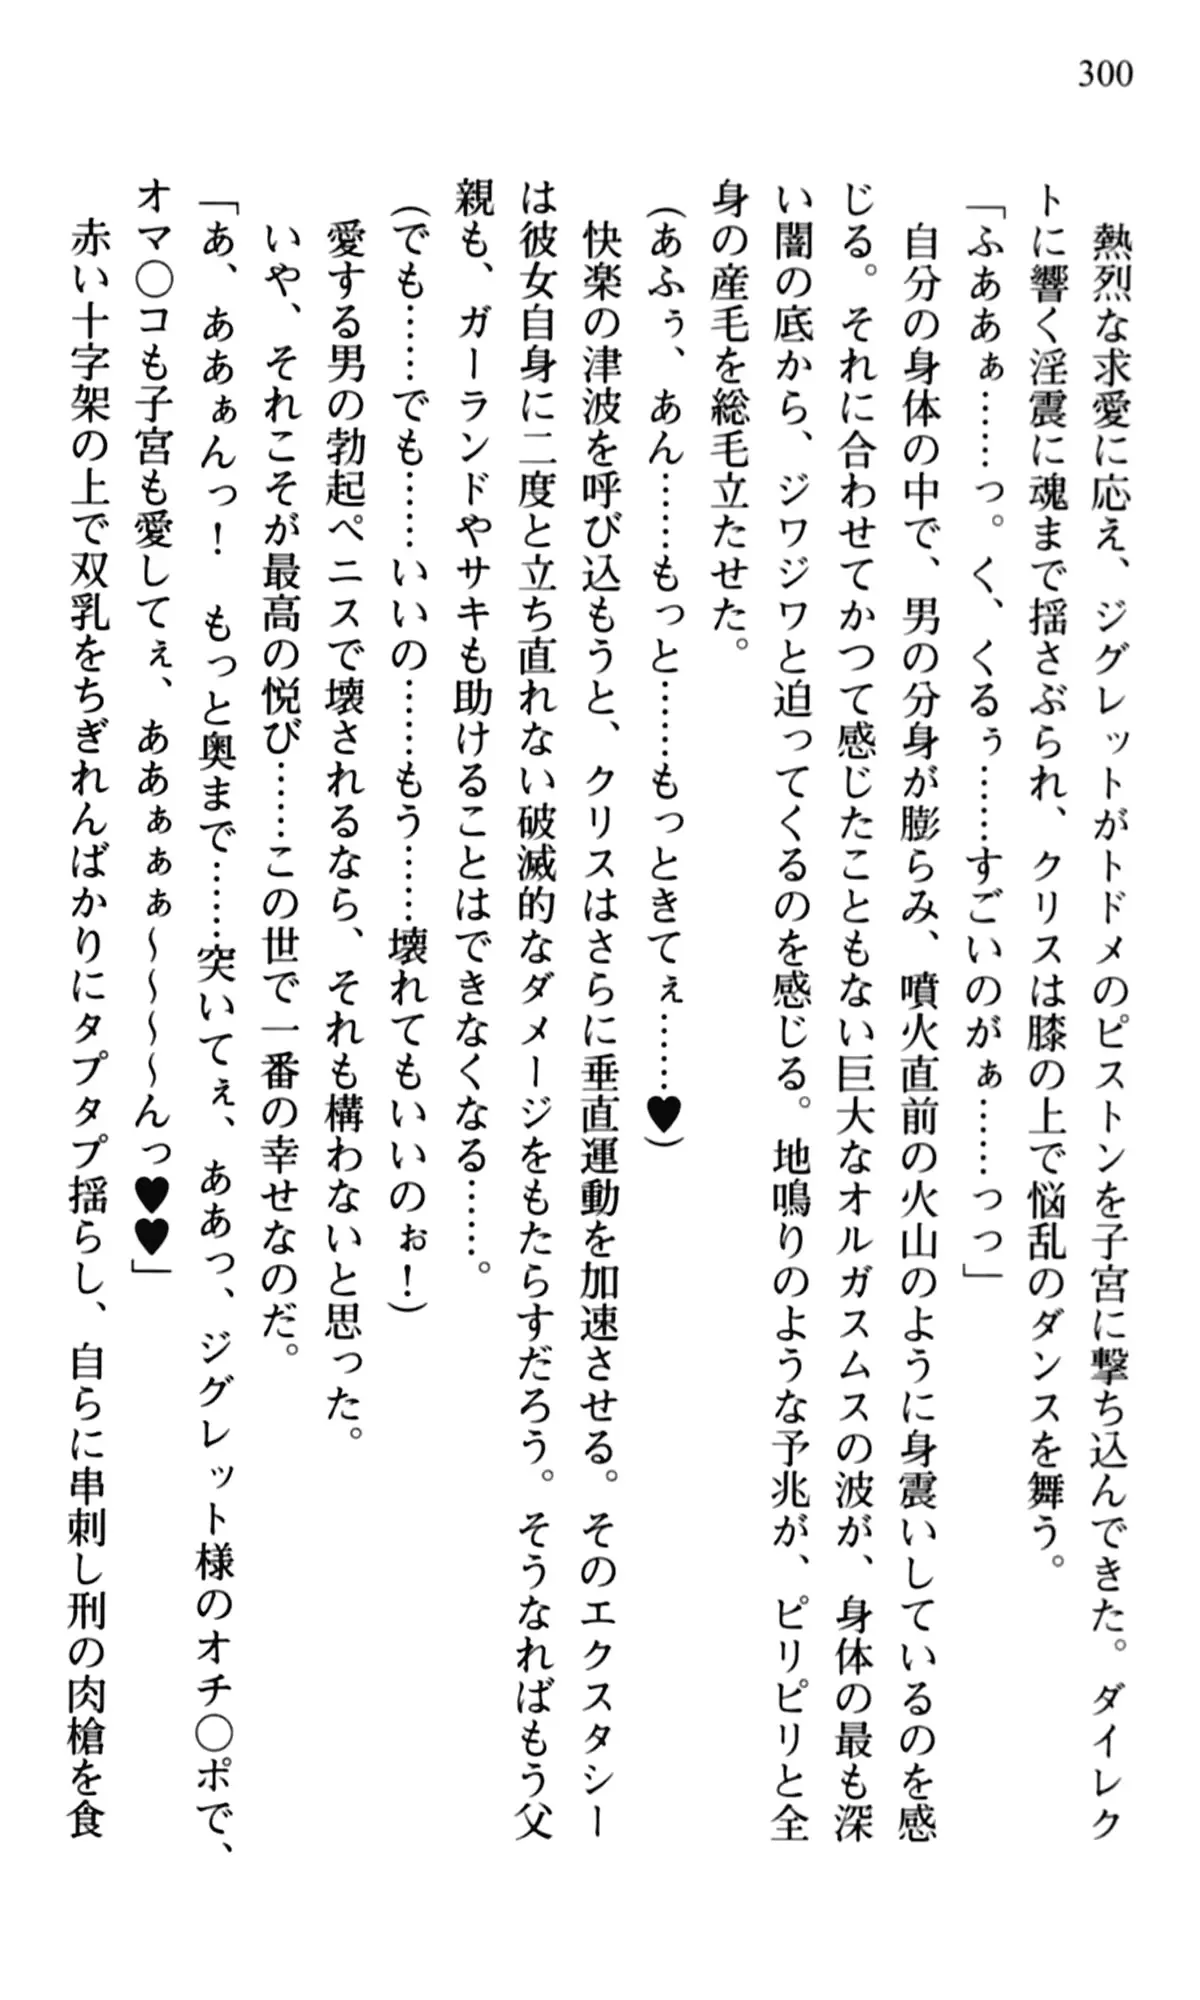 300
　熱烈な求愛に応え、ジグレットがトドメのピストンを子宮に撃ち込んできた。ダイレク
トに響く淫震に魂まで揺さぶられ、クリスは膝の上で悩乱のダンスを舞う。
「ふああぁ……っ。く、くるぅ……すごいのがぁ……っっ」
　自分の身体の中で、男の分身が膨らみ、噴火直前の火山のように身震いしているのを感
じる。それに合わせてかつて感じたこともない巨大なオルガスムスの波が、身体の最も深
い闇の底から、ジワジワと迫ってくるのを感じる。地鳴りのような予兆が、ピリピリと全
身の産毛を総毛立たせた。
（あふぅ、あん……もっと……もっときてぇ……♥）
　快楽の津波を呼び込もうと、クリスはさらに垂直運動を加速させる。そのエクスタシー
は彼女自身に二度と立ち直れない破滅的なダメージをもたらすだろう。そうなればもう父
親も、ガーランドやサキも助けることはできなくなる……。
（でも……でも……いいの……もう……壊れてもいいのぉ！）
　愛する男の勃起ペニスで壊されるなら、それも構わないと思った。
　いや、それこそが最高の悦び……この世で一番の幸せなのだ。
「あ、ああぁんっ！　もっと奥まで……突いてぇ、ああっ、ジグレット様のオチ◯ポで、
オマ◯コも子宮も愛してぇ、ああぁぁぁ～～～～んっ♥♥」
　赤い十字架の上で双乳をちぎれんばかりにタプタプ揺らし、自らに串刺し刑の肉槍を食